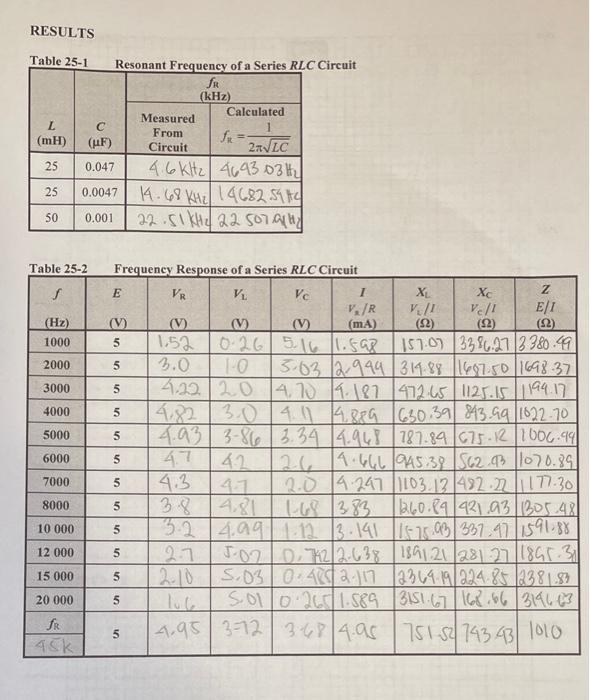 RESULTS
Table 25-1 Resonant Frequency of a Series RLC Circuit
fR
(kHz)
L C Measured Calculated
(mH) (μF) From Circuit fR = 1 / 2π√LC
25 0.047 4.6 KHz 4693.03 Hz
25 0.0047 14.68 KHz 14682.59 Hz
50 0.001 22.51 KHz 22507.91 Hz
Table 25-2 Frequency Response of a Series RLC Circuit
f E VR VL VC I XL XC Z
VR/R VL/I VC/I E/I
(Hz) (V) (V) (V) (V) (mA) (Ω) (Ω) (Ω)
1000 5 1.52 0.26 5.16 1.598 157.07 3386.27 3380.49
2000 5 3.0 1.0 5.03 2.944 314.88 1687.50 1698.37
3000 5 4.22 2.0 4.70 4.187 472.65 1125.15 1194.17
4000 5 4.82 3.0 4.11 4.889 630.39 843.99 1022.70
5000 5 4.93 3.86 3.34 4.968 787.89 675.12 1006.49
6000 5 4.7 4.2 2.6 4.666 945.38 562.93 1070.89
7000 5 4.3 4.7 2.0 4.247 1103.13 482.22 1177.30
8000 5 3.8 4.81 1.68 3.83 1260.89 421.93 1305.48
10 000 5 3.2 4.99 1.12 3.141 1575.93 337.47 1591.88
12 000 5 2.7 5.07 0.742 2.638 1891.21 281.27 1895.31
15 000 5 2.10 5.03 0.485 2.117 2364.19 224.85 2381.83
20 000 5 1.6 5.01 0.265 1.589 3151.67 168.66 3146.63
fR 5 4.95 3.72 3.68 4.95 751.52 743.43 1010
4.5k